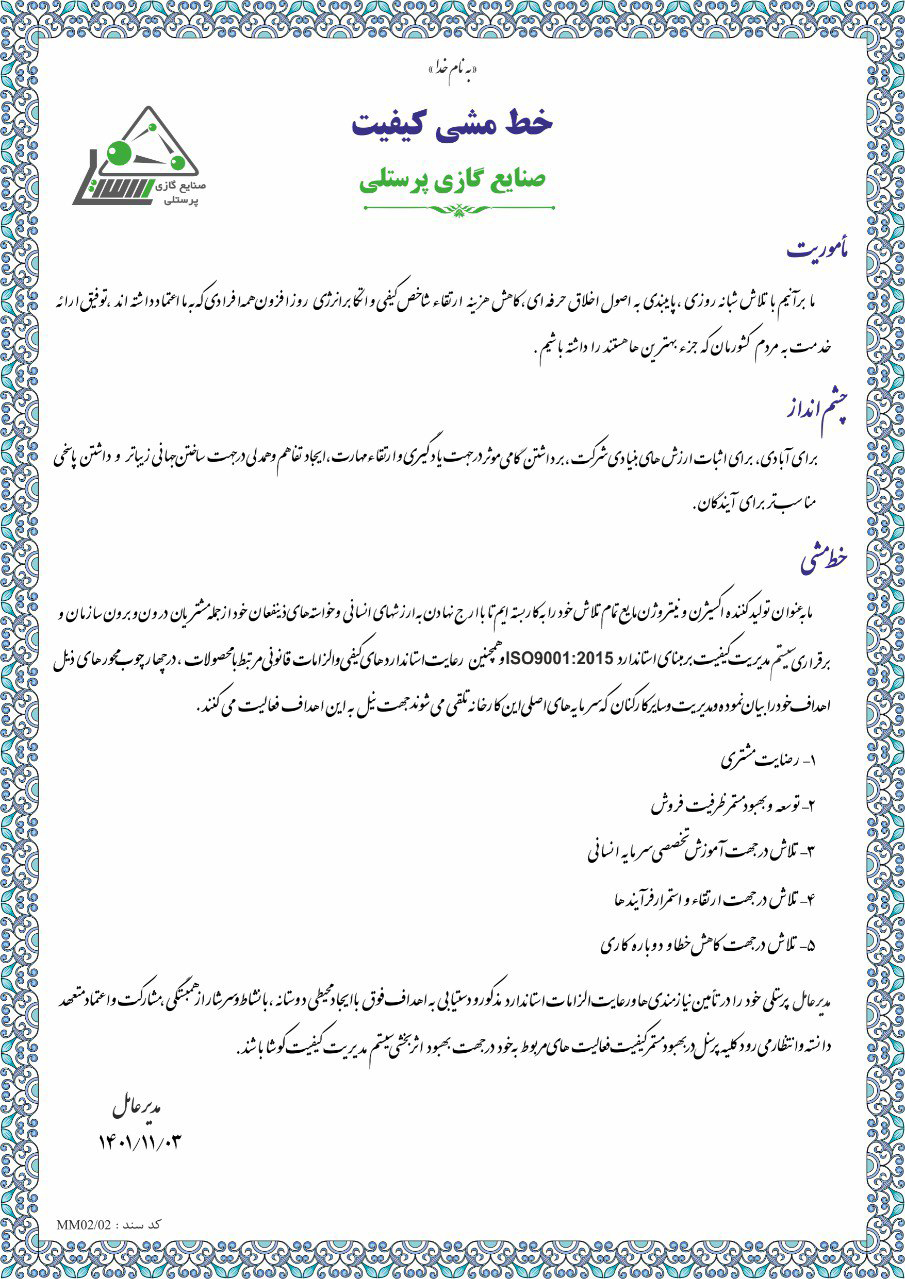 «به نام خدا»
خط مشی کیفیت
صنایع گازی پرستلی
صنایع گازی
پرستلی
مأموریت
ما برآنیم با تلاش شبانه روزی ، پایبندی به اصول اخلاق حرفه ای، کاهش هزینه ارتقاء شاخص کیفی و اتکا بر انرژی روز افزون همه افرادی که به ما اعتماد داشته اند ، توفیق ارائه
خدمت به مردم کشورمان که جزء بهترین ها هستند را داشته باشیم .
چشم انداز
برای آبادی، برای اثبات ارزش های بنیادی شرکت ، برداشتن گامی موثر درجهت یادگیری و ارتقاء مهارت، ایجاد تفاهم و همدلی درجهت ساختن جهانی زیباتر و داشتن پاسخی
مناسبتر برای آیندگان.
خط مشی
ما به عنوان تولید کننده اکسیژن و نیتروژن مایع تمام تلاش خود را به کار بسته ایم تا با ارج نهادن به ارزشهای انسانی و خواسته های ذینفعان خود از جمله مشتریان درون و برون سازمان و
برقراری سیستم مدیریت کیفیت بر مبنای استاندارد ISO9001:2015 و همچنین رعایت استانداردهای کیفی و الزامات قانونی مرتبط با محصولات ، در چهارچوب محورهای ذیل
اهداف خود را بیان نموده و مدیریت و سایر کارکنان که سرمایه های اصلی این کارخانه تلقی می شوند جهت نیل به این اهداف فعالیت می کنند.
۱- رضایت مشتری
۲- توسعه و بهبود مستمر ظرفیت فروش
۳- تلاش در جهت آموزش تخصصی سرمایه انسانی
۴- تلاش در جهت ارتقاء و استمرار فرآیند ها
۵- تلاش در جهت کاهش خطا و دوباره کاری
مدیرعامل پرستلی خود را در تأمین نیازمندی ها و رعایت الزامات استاندارد مذکور و دستیابی به اهداف فوق با ایجاد محیطی دوستانه ، با نشاط و سرشار از همبستگی ، مشارکت و اعتماد متعهد
دانسته و انتظار می رود کلیه پرسنل در بهبود مستمر کیفیت فعالیت های مربوط به خود در جهت بهبود اثربخشی سیستم مدیریت کیفیت کوشا باشند.
مدیرعامل
۱۴۰۱/۱۱/۰۳
کد سند : MM02/02